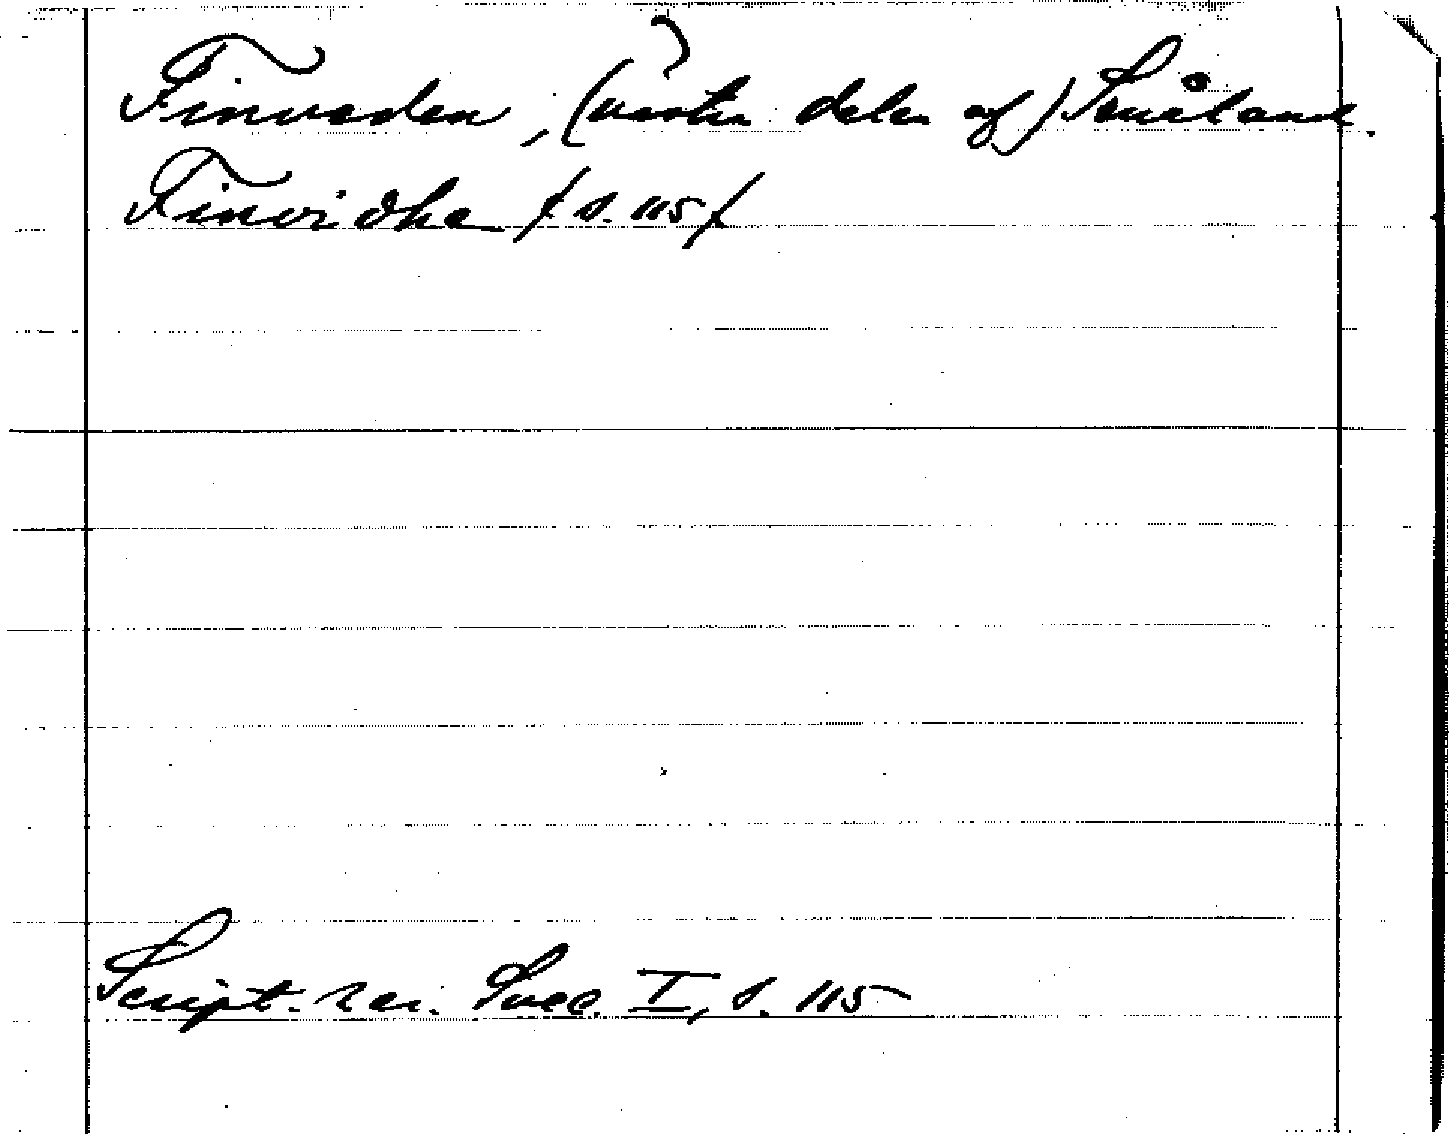 Finveden, (vestra delen af) Småland.
Finvidhe /s. 115/
Script. rer. Svec. I, s. 115